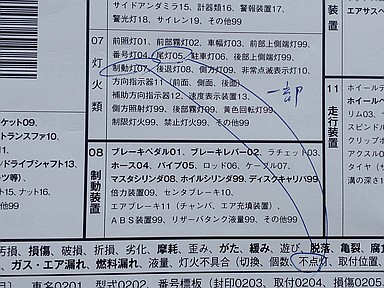 サイドアンダミラ15、計器類16、警報装置17、
警光灯18、サイレン19、その他99
エアサスペ
07 灯火類
前照灯01、前部霧灯02、車幅灯03、前部上側端灯99、
番号灯04、尾灯05、駐車灯06、後部上側端灯99、
制動灯07、後退灯08、側方灯09、非常点滅表示灯10、
方向指示器11（前面、側面、後面）
補助方向指示器12、速度表示装置13、
側方照射灯99、後部霧灯99、黄色回転灯99
制限灯99、禁止灯火99、その他99
一部
11 走行装置
ホイール
リム03、
スポーク
クリップボ
アクスル0
タイヤ
溝の深さ1
ケット09、
トランスファ10、
ンドライブシャフト13、
ーツ等)、
ト15、ナット16、
その他99
08 制動装置
ブレーキペダル01、ブレーキレバー02、ラチェット03、
ホース04、パイプ05、ロッド06、ケーブル07、
マスタシリンダ08、ホイルシリンダ99、ディスクキャリパ99
倍力装置09、センタブレーキ10、
エアブレーキ11（チャンバ、エア充填装置）、
ＡＢＳ装置99、リザーバタンク液量99、その他99
汚損、損傷、破損、折損、劣化、摩耗、歪み、がた、緩み、遊び、脱落、亀裂、腐食
ガス・エア漏れ、燃料漏れ、液量、灯火不具合（切換、個数、不点灯、取付位置、
車名0201、型式0202、車番標板（封印0203、取付0204、損傷0205